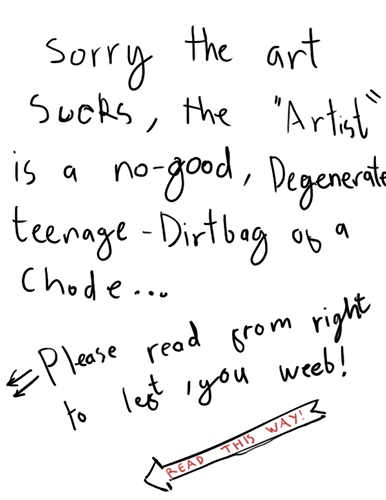 Sorry the art
Sucks, the "Artist"
is a no-good, Degenerate
teenage-Dirtbag of a
Chode...
Please read from right
to left, you weeb!
READ THIS WAY!